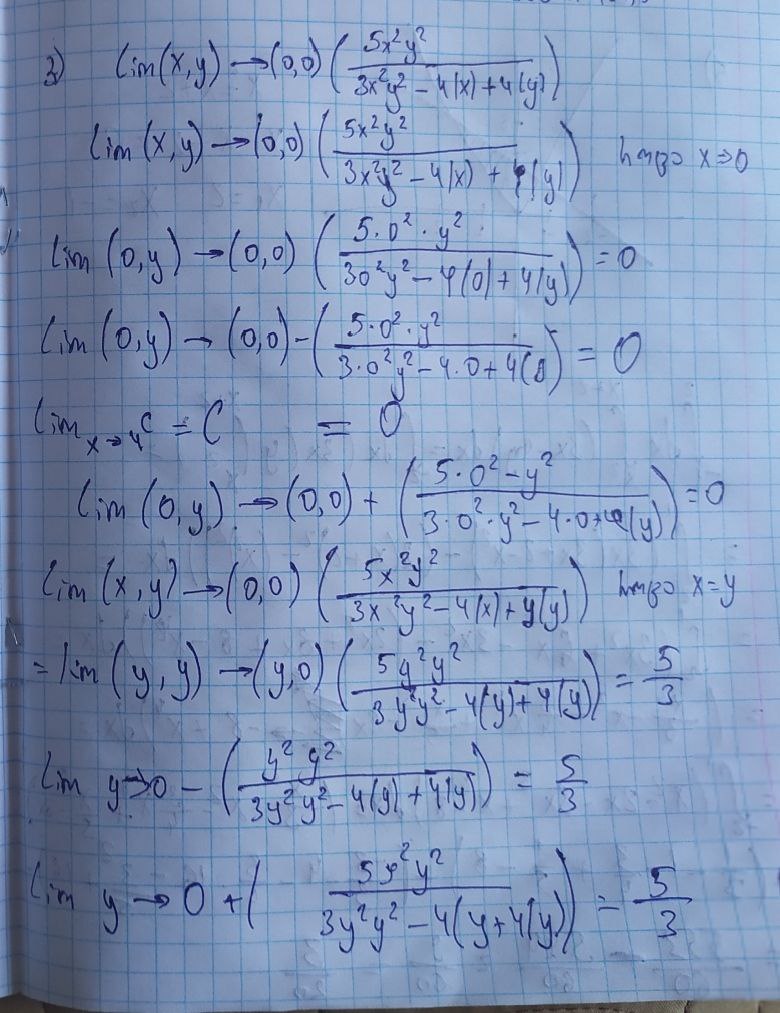 3) lim(x,y)→(0,0) (5x²y² / 3x²y² - 4(x) + 4(y))
lim(x,y)→(0,0) (5x²y² / 3x²y² - 4(x) + 4(y)) x→0
lim(0,y)→(0,0) (5·0²·y² / 30²y² - 4(0) + 4(y)) = 0
lim(0,y)→(0,0)- (5·0²·y² / 3·0²y² - 4·0 + 4() = 0
lim x→4 C = C = 0
lim(0,y)→(0,0)+ (5·0²-y² / 3·0²·y² - 4·0 + 4(y)) = 0
lim(x,y)→(0,0) (5x²y² / 3x²y² - 4(x) + y(y)) x=y
= lim(y,y)→(y,0) (5y²y² / 3y²y² - 4(y) + 4(y)) = 5/3
lim y→0- (y²y² / 3y²y² - 4(y) + 4(y)) = 5/3
lim y→0+ (5y²y² / 3y²y² - 4(y + 4(y)) = 5/3